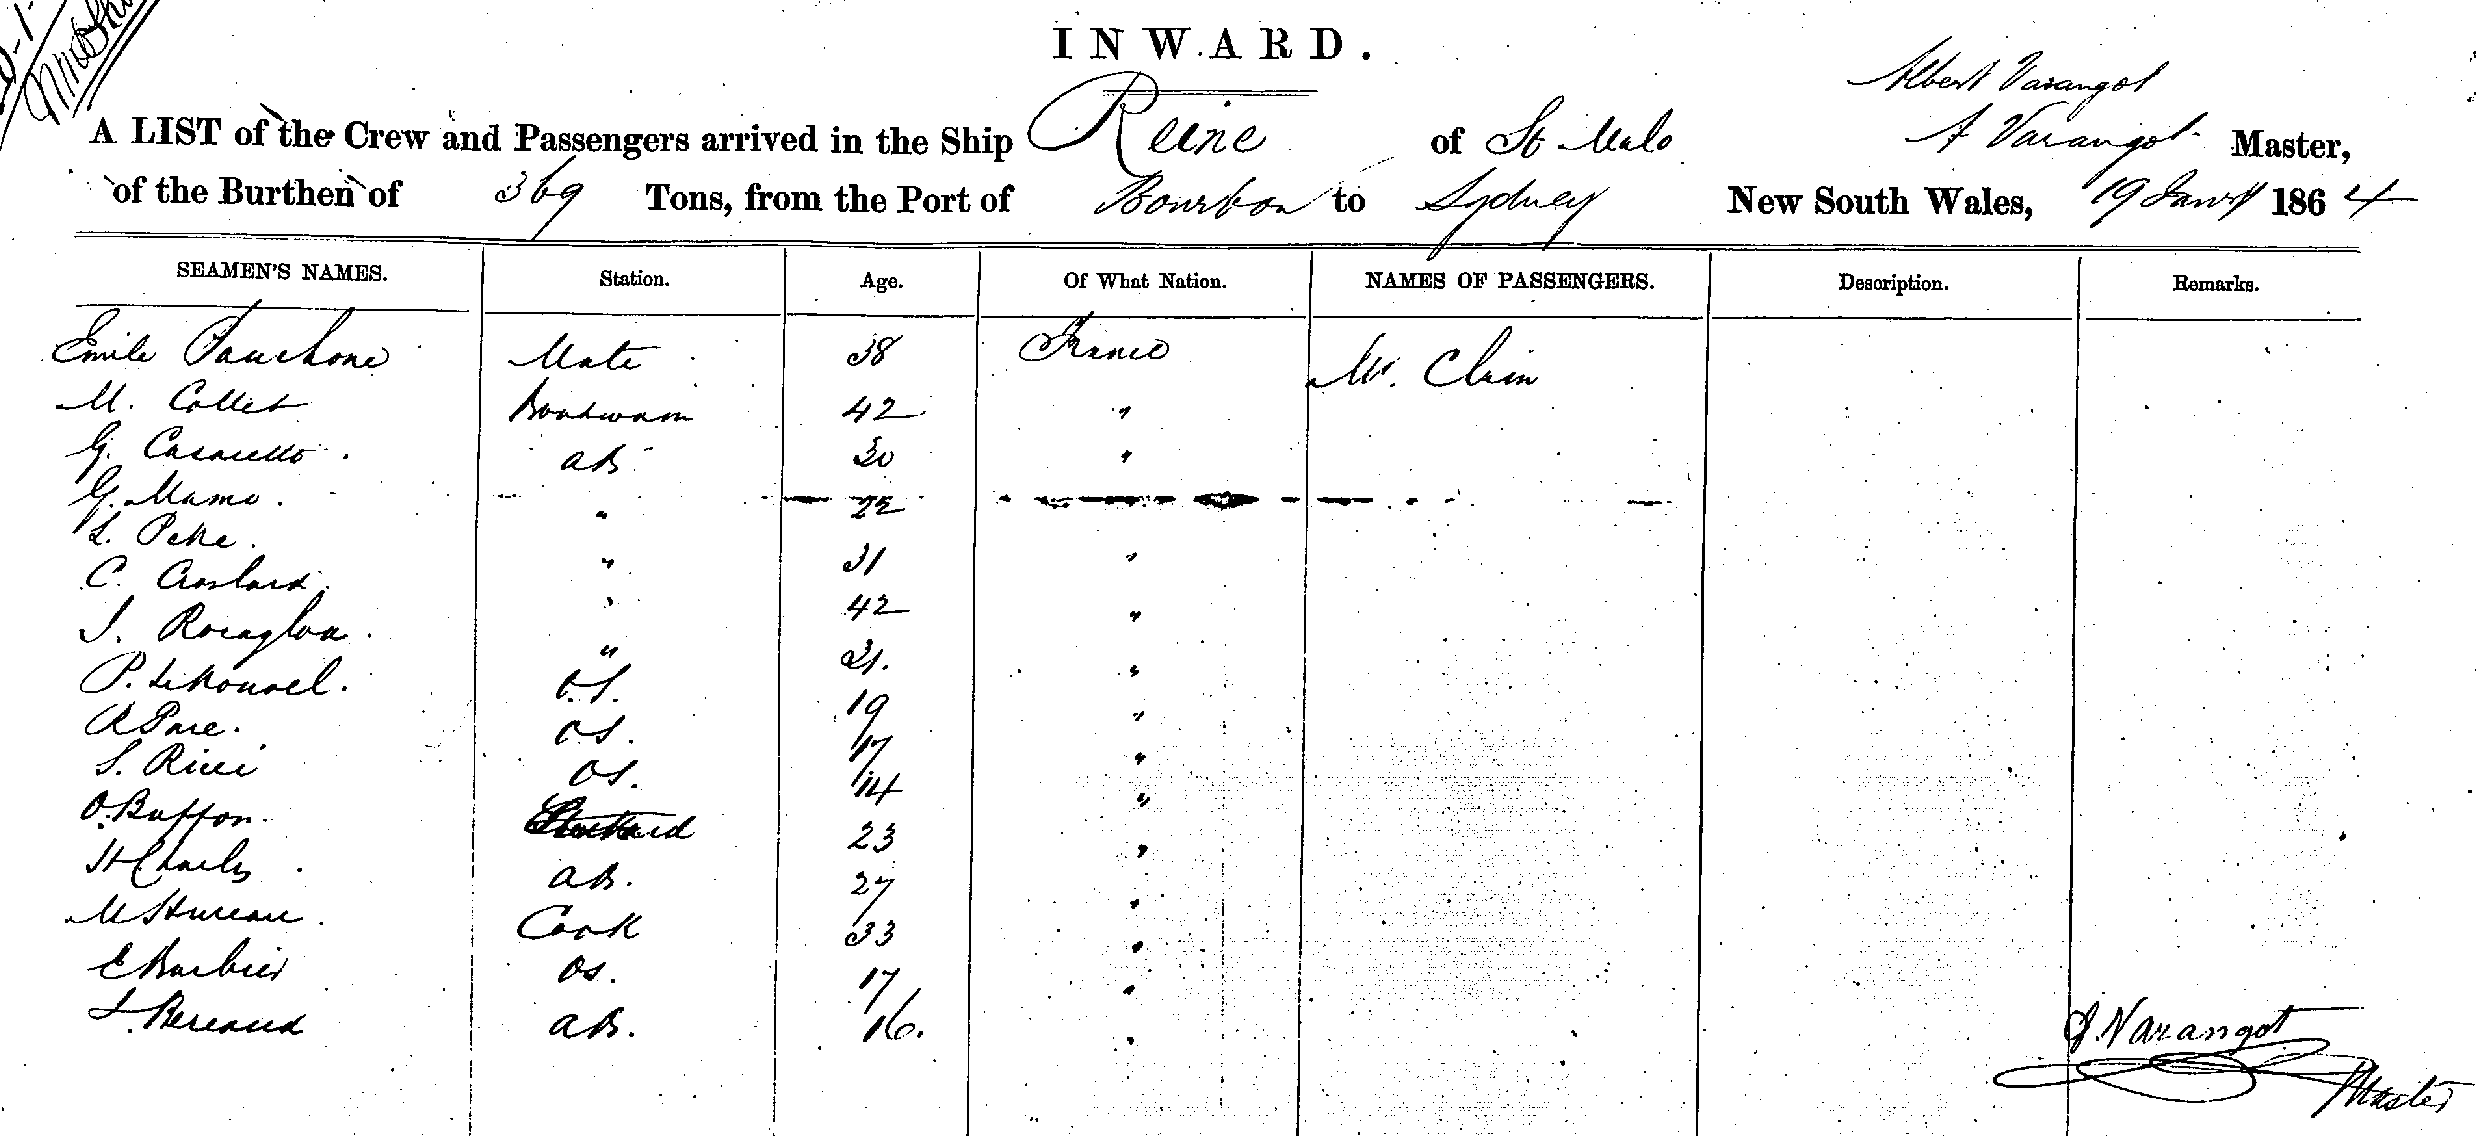 INWARD.
Albert Varangot
A LIST of the Crew and Passengers arrived in the Ship Reine of St Malo A Varangot Master,
of the Burthen of 369 Tons, from the Port of Bourbon to Sydney New South Wales, 19 Jany 1864
SEAMEN'S NAMES. Station. Age. Of What Nation. NAMES OF PASSENGERS. Description. Remarks.
Emile Mate 38 France Mr.
M. Collet Boatswain 42 "
G. AB 30 "
G. Mamo. " 22
L. " 31 "
C. " 42 "
J. " 21. "
P. O.S. 19 "
A Pare. OS. 17 "
S. Ricci OS. 14 "
O. Buffon. 23 "
St Charles AB. 27 "
M Hureau. Cook 33 "
E Barbier OS. 17 "
AB. 16. "
A. Varangot
Master